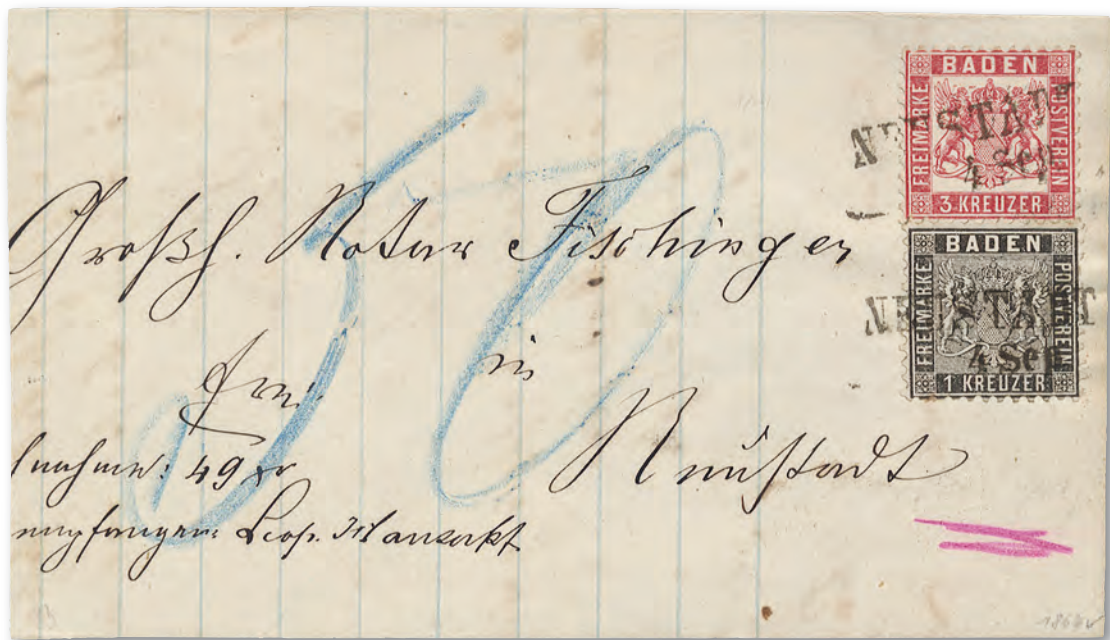 BADEN
FREIMARKE
POSTVEREIN
3 KREUZER
NEUSTADT
4 Sep
BADEN
FREIMARKE
POSTVEREIN
1 KREUZER
NEUSTADT
4 Sep
50
Großh. Notar Fischinger
frei.
in
Neustadt
lnahme: 49 xr
empfangen: Leop.